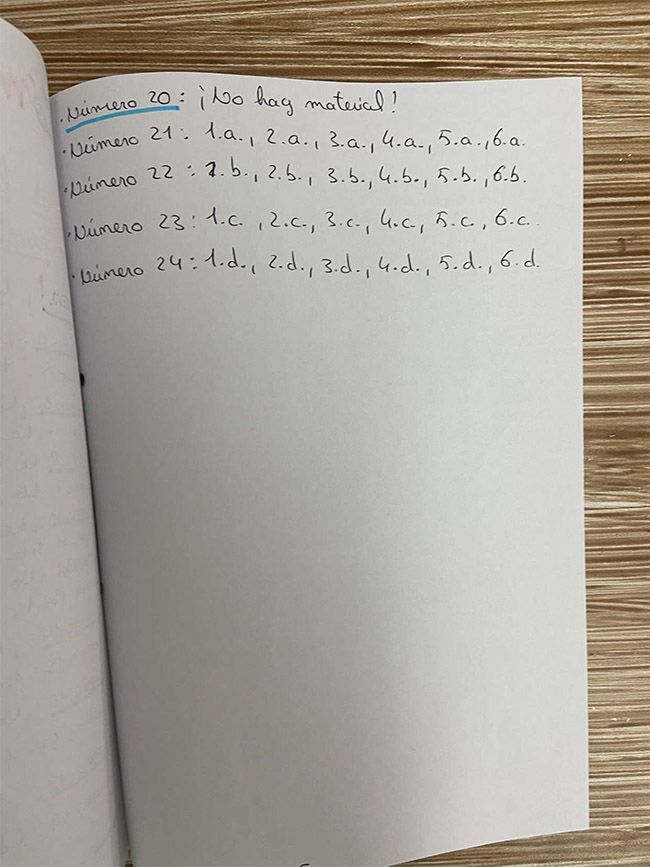 · Número 20: ¡No hay material!
· Número 21: 1.a., 2.a., 3.a., 4.a., 5.a., 6.a.
· Número 22: 1.b., 2.b., 3.b., 4.b., 5.b., 6.b.
· Número 23: 1.c., 2.c., 3.c., 4.c., 5.c., 6.c.
· Número 24: 1.d., 2.d., 3.d., 4.d., 5.d., 6.d.